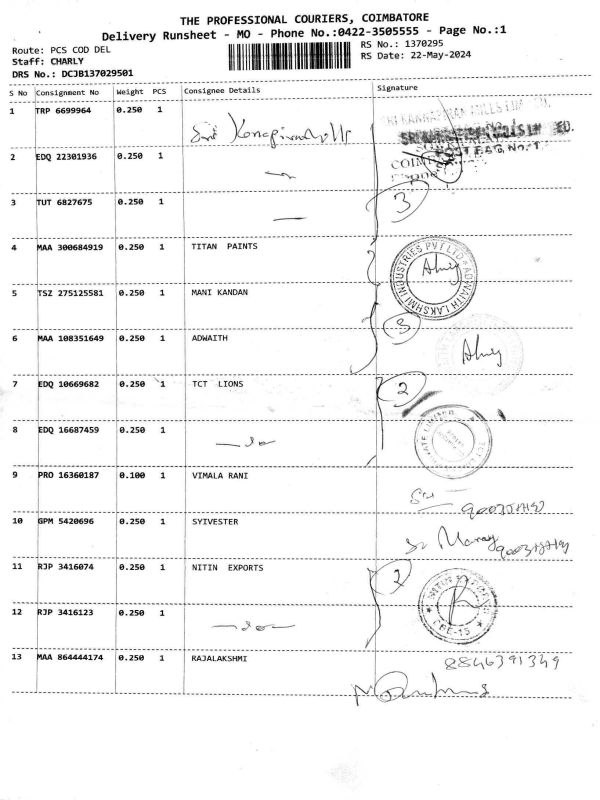 THE PROFESSIONAL COURIERS, COIMBATORE
Delivery Runsheet - MO - Phone No.:0422-3505555 - Page No.:1
Route: PCS COD DEL
Staff: CHARLY
DRS No.: DCJB137029501
RS No.: 1370295
RS Date: 22-May-2024
S No Consignment No Weight PCS Consignee Details Signature
1 TRP 6699964 0.250 1
2 EDQ 22301936 0.250 1
3 TUT 6827675 0.250 1 3
4 MAA 300684919 0.250 1 TITAN PAINTS
5 TSZ 275125581 0.250 1 MANI KANDAN
6 MAA 108351649 0.250 1 ADWAITH 3
7 EDQ 10669682 0.250 1 TCT LIONS 2
8 EDQ 16687459 0.250 1
9 PRO 16360187 0.100 1 VIMALA RANI
10 GPM 5420696 0.250 1 SYIVESTER
11 RJP 3416074 0.250 1 NITIN EXPORTS 2
12 RJP 3416123 0.250 1
CBE-15
13 MAA 864444174 0.250 1 RAJALAKSHMI 8846391349